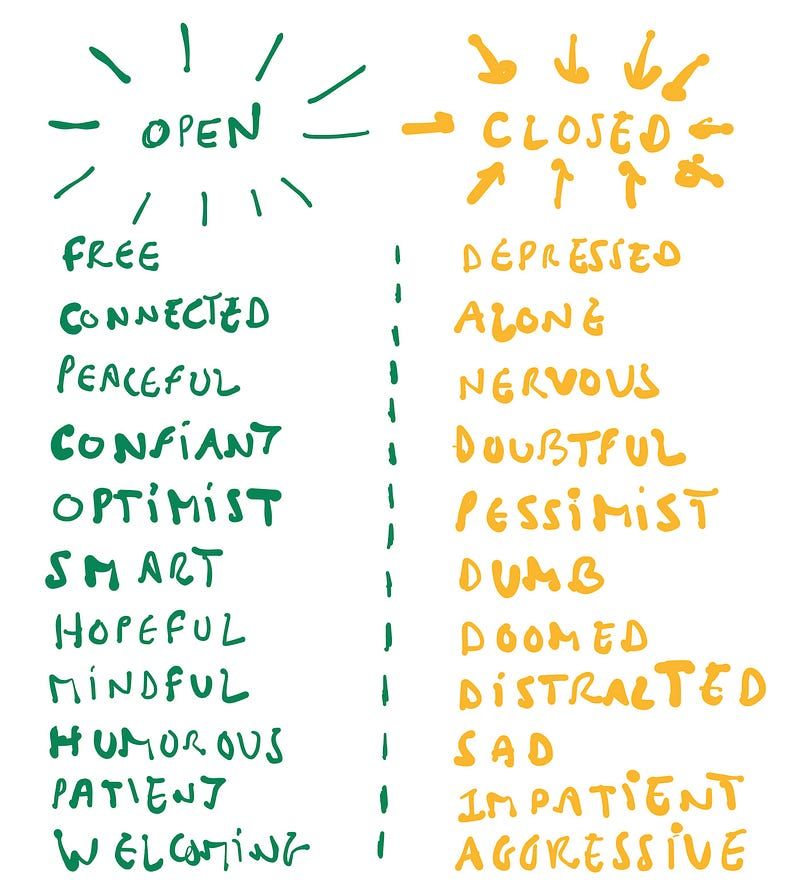 OPEN
FREE
CONNECTED
PEACEFUL
CONFiANT
OPTiMiST
SMART
HOPEFUL
MiNDFUL
HUMOROUS
PATIENT
WELCOMiNG
CLOSED
DEPRESSED
ALONE
NERVOUS
DOUBTFUL
PESSiMiST
DUMB
DOOMED
DiSTRACTED
SAD
IMPATiENT
AGGRESSiVE